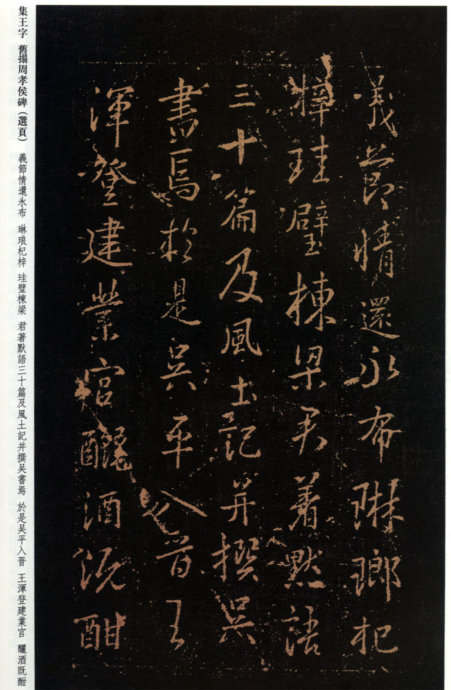 義節情還永布琳瑯杞
梓珪璧棟梁君著默語
三十篇及風土記并撰吳
書焉於是吳平入晉王
渾登建業宮釃酒既酣
集王字 舊搨周孝侯碑（選頁） 義節情還永布 琳琅杞梓 珪璧棟梁 君著默語三十篇及風土記并撰吳書焉 於是吳平入晉 王渾登建業宮 釃酒既酣